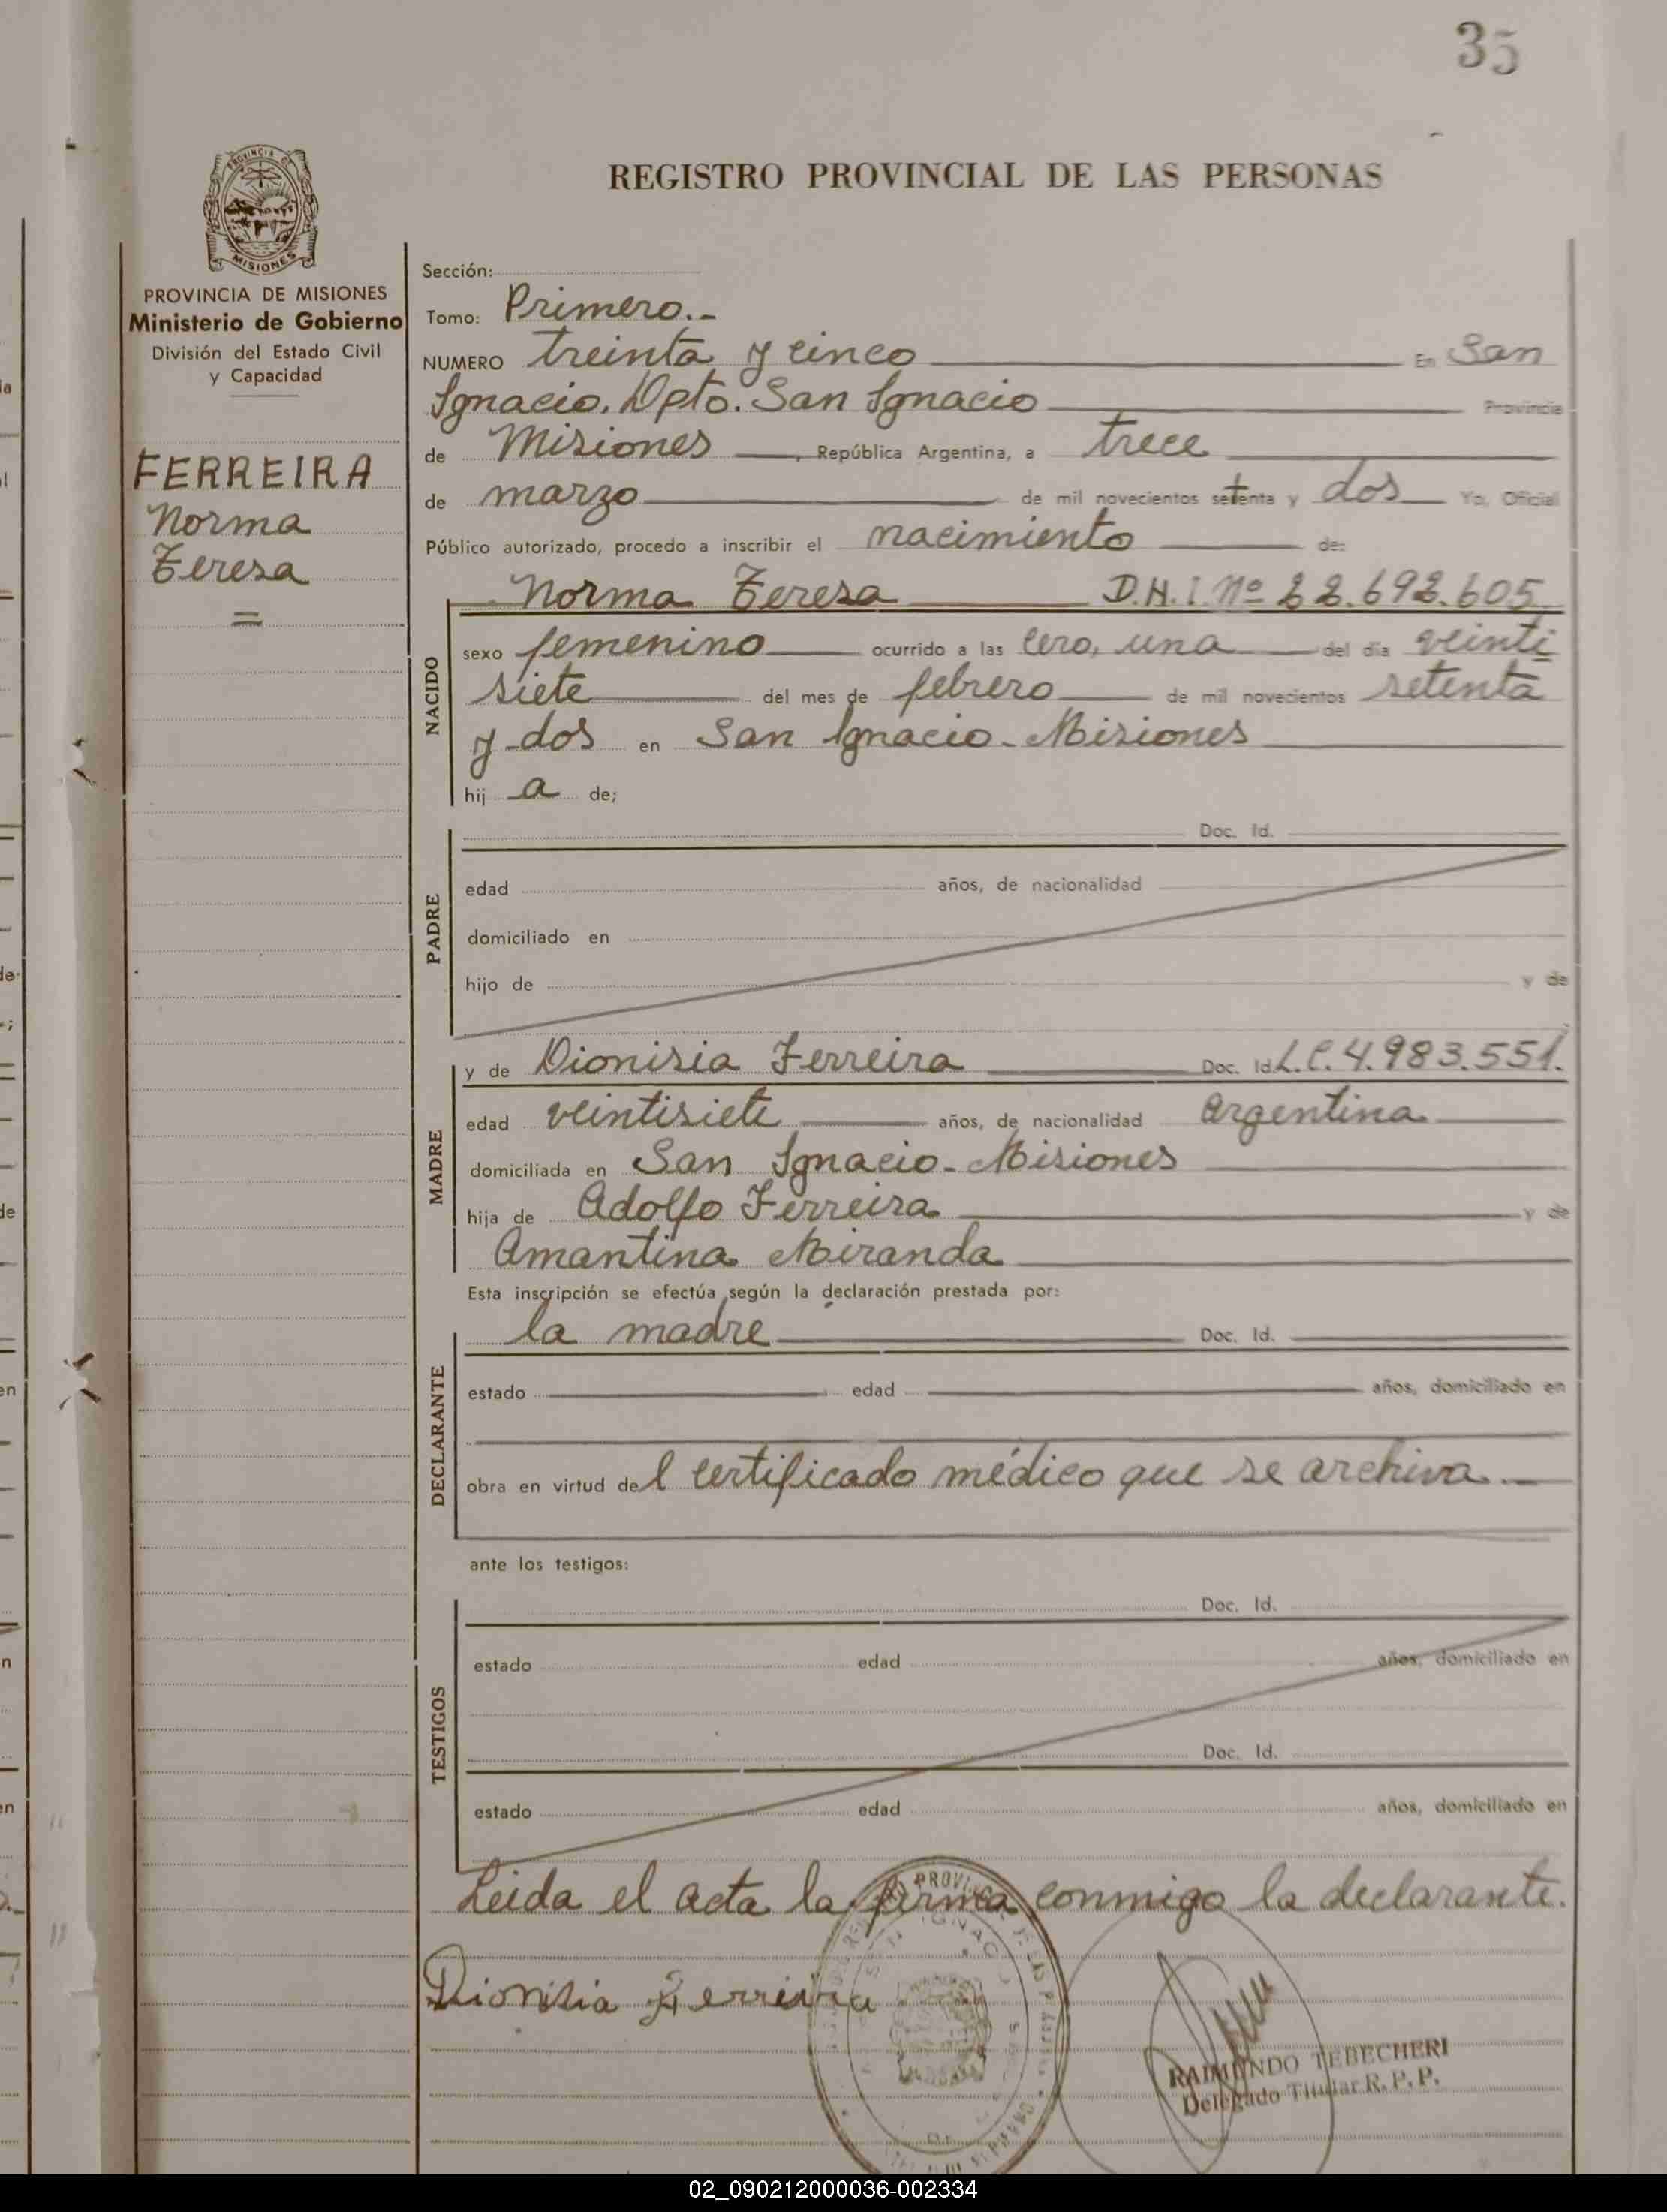 35
PROVINCIA DE MISIONES
Ministerio de Gobierno
División del Estado Civil
y Capacidad
FERREIRA
Norma
Teresa
=
REGISTRO PROVINCIAL DE LAS PERSONAS
Sección:
Tomo: Primero.-
NUMERO treinta y cinco En San
Ignacio. Dpto. San Ignacio Provincia
de Misiones, República Argentina, a trece
de marzo de mil novecientos setenta y dos Yo, Oficial
Público autorizado, procedo a inscribir el nacimiento de:
NACIDO
Norma Teresa D.N.I. Nº 22.692.605
sexo femenino ocurrido a las cero, una del día veinti
siete del mes de febrero de mil novecientos setenta
y dos en San Ignacio - Misiones
hij a de;
PADRE
Doc. Id.
edad años, de nacionalidad
domiciliado en
hijo de y de
MADRE
y de Dionisia Ferreira Doc. Id. L.C. 4.983.551.
edad veintisiete años, de nacionalidad Argentina
domiciliada en San Ignacio - Misiones
hija de Adolfo Ferreira y de
Amantina Miranda
Esta inscripción se efectúa según la declaración prestada por:
DECLARANTE
la madre Doc. Id.
estado edad años, domiciliado en
obra en virtud del certificado médico que se archiva.-
ante los testigos:
TESTIGOS
Doc. Id.
estado edad años, domiciliado en
Doc. Id.
estado edad años, domiciliado en
Leida el acta la firma conmigo la declarante.
Dionisia Ferreira
RAIMUNDO TEBECHERI
Delegado Titular R. P. P.
02_090212000036-002334